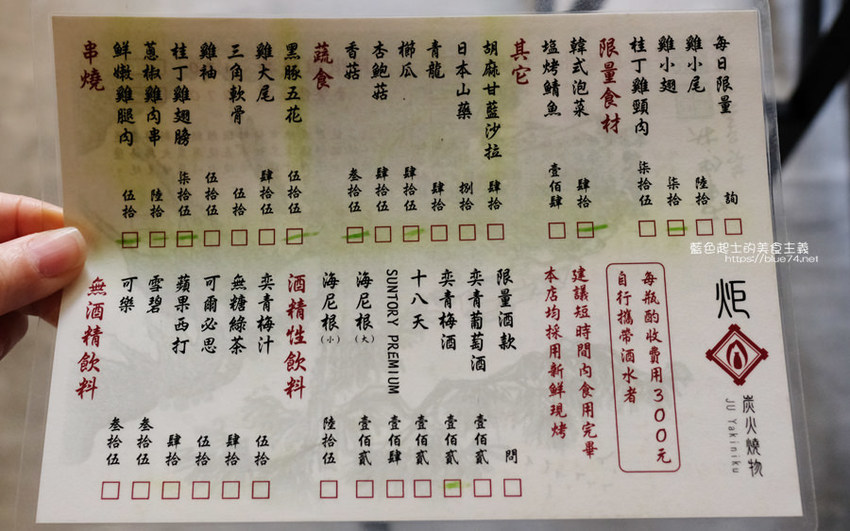 串燒
鮮嫩雞腿肉 伍拾
蔥椒雞肉串 陸拾
桂丁雞翅膀 柒拾伍
雞柚 伍拾伍
三角軟骨 伍拾
雞大尾 肆拾伍
黑豚五花 伍拾伍
蔬食
香菇 叁拾伍
杏鮑菇 肆拾伍
櫛瓜 肆拾伍
青龍 肆拾
日本山藥 捌拾
胡麻甘藍沙拉 肆拾
其它
塩烤鯖魚 壹佰肆
韓式泡菜 肆拾
限量食材
桂丁雞頸肉 柒拾伍
雞小翅 柒拾
雞小尾 陸拾
每日限量 詢
無酒精飲料
可樂 叁拾伍
雪碧 叁拾伍
蘋果西打 肆拾
可爾必思 伍拾
無糖綠茶 肆拾
奕青梅汁 伍拾
酒精性飲料
海尼根(小) 陸拾伍
海尼根(大) 壹佰貳
SUNTORY PREMIUM 壹佰肆
十八天 壹佰貳
奕青梅酒 壹佰貳
奕青葡萄酒 壹佰貳
限量酒款 問
建議短時間內食用完畢
本店均採用新鮮現烤
每瓶酌收費用300元
自行攜帶酒水者
炬
炭火燒物
JU Yakiniku
藍色起士的美食主義
https://blue74.net